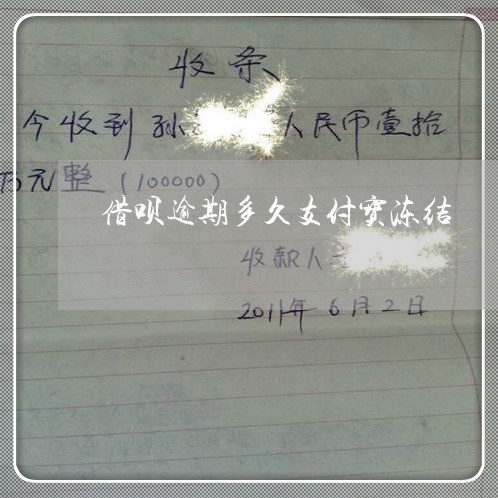 收条
今收到孙 人民币壹拾
万元整（100000）
借呗逾期多久支付宝冻结
收款人
2011年6月2日